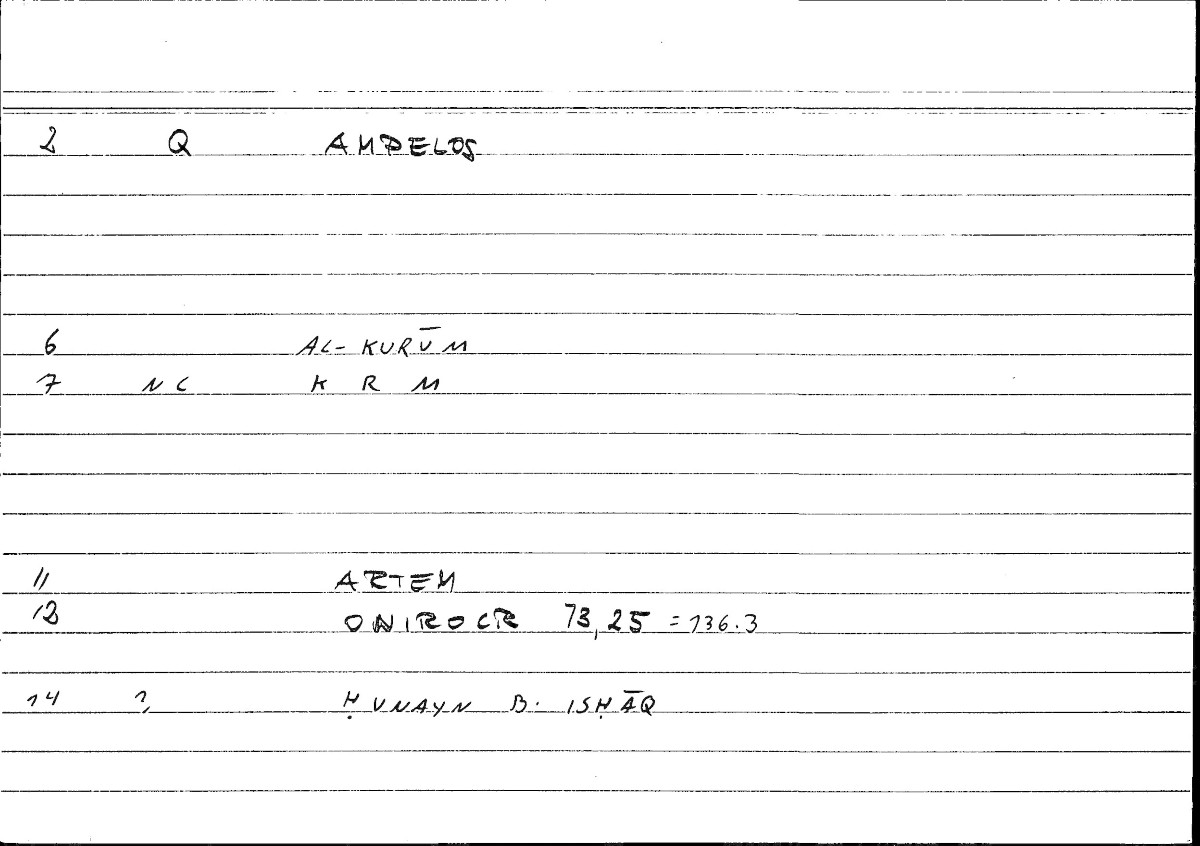 2 Q AMPELOS
6 AL-KURŪM
7 NC K R M
11 ARTEM
12 ONIROCR 73,25 = 136.3
14 ?, ḤUNAYN B. ISḤĀQ